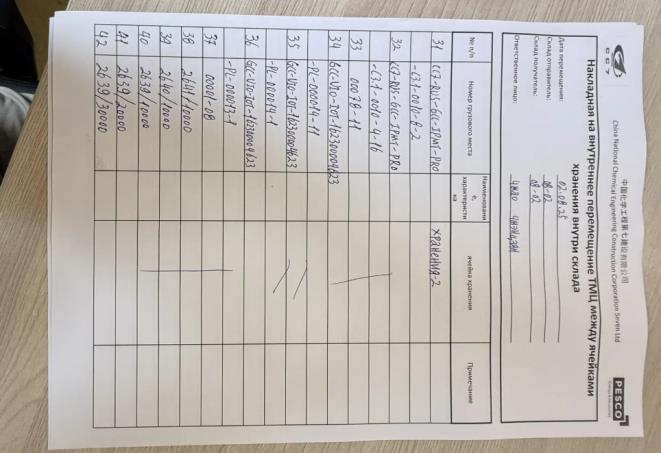 CC7
中国化学工程第七建设有限公司
China National Chemical Engineering Construction Corporation Seven Ltd
PESCO
Накладная на внутреннее перемещение ТМЦ между ячейками
хранения внутри склада
Дата перемещения: 02.08.25
Склад отправитель: 08-02
Склад получатель: 08-02
Ответственное лицо: Чжао
№ п/п Номер грузового места Наименование, характеристика ячейка хранения Примечание
31 CC7-RUS-GCC-IPMT-PRO хранения-2
-C31-0010-8-2
32 CC7-RUS-GCC-IPMT-PRO
-C31-0010-4-16
33 00078-11
34 GCC-VIO-IOT-162300004623
-PL-000014-11
35 GCC-VIO-IOT-162300004623
-PL-000014-1
36 GCC-VIO-IOT-162300004623
-PL-000013-1
37 00001-08
38 2641/10000
39 2640/10000
40 2639/10000
41 2639/20000
42 2639/30000